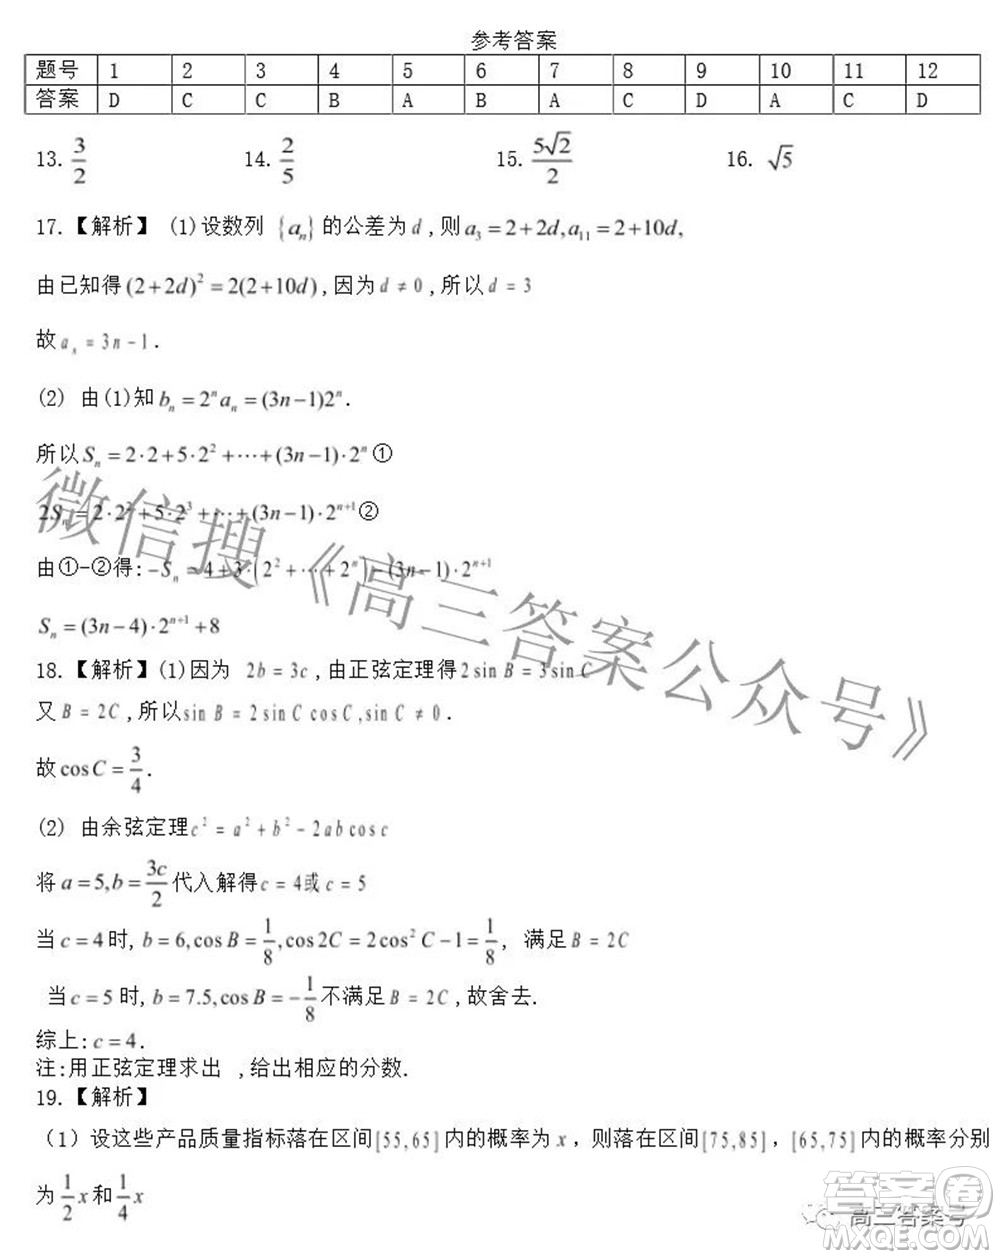 参考答案
题号 1 2 3 4 5 6 7 8 9 10 11 12
答案 D C C B A B A C D A C D
13. 3/2 14. 2/5 15. 5√2/2 16. √5
17.【解析】 (1)设数列 {aₙ} 的公差为 d ,则 a₃ = 2 + 2d, a₁₁ = 2 + 10d,
由已知得 (2 + 2d)² = 2(2 + 10d) ,因为 d ≠ 0 ,所以 d = 3
故 aₙ = 3n - 1 .
(2) 由(1)知 bₙ = 2ⁿaₙ = (3n−1)2ⁿ .
所以 Sₙ = 2·2 + 5·2² + ⋯ + (3n−1)·2ⁿ ①
2Sₙ = 2·2² + 5·2³ + ⋯ + (3n−1)·2ⁿ⁺¹ ②
由①-②得: −Sₙ = 4 + 3·(2² + ⋯ + 2ⁿ) − (3n−1)·2ⁿ⁺¹
Sₙ = (3n−4)·2ⁿ⁺¹ + 8
18.【解析】(1)因为 2b = 3c ,由正弦定理得 2 sin B = 3 sin C
又 B = 2C ,所以 sin B = 2 sin C cos C , sin C ≠ 0 .
故 cos C = 3/4 .
(2) 由余弦定理 c² = a² + b² - 2ab cos c
将 a = 5, b = 3c/2 代入解得 c = 4 或 c = 5
当 c = 4 时, b = 6, cos B = 1/8, cos 2C = 2cos² C − 1 = 1/8 , 满足 B = 2C
当 c = 5 时, b = 7.5, cos B = −1/8 不满足 B = 2C ,故舍去.
综上: c = 4 .
注:用正弦定理求出 ,给出相应的分数.
19.【解析】
（1）设这些产品质量指标落在区间[55,65]内的概率为 x ，则落在区间[75,85]，[65,75]内的概率分别
为 1/2 x 和 1/4 x
微信搜《高三答案公众号》
高三答案号
答案卷
MXQE.COM